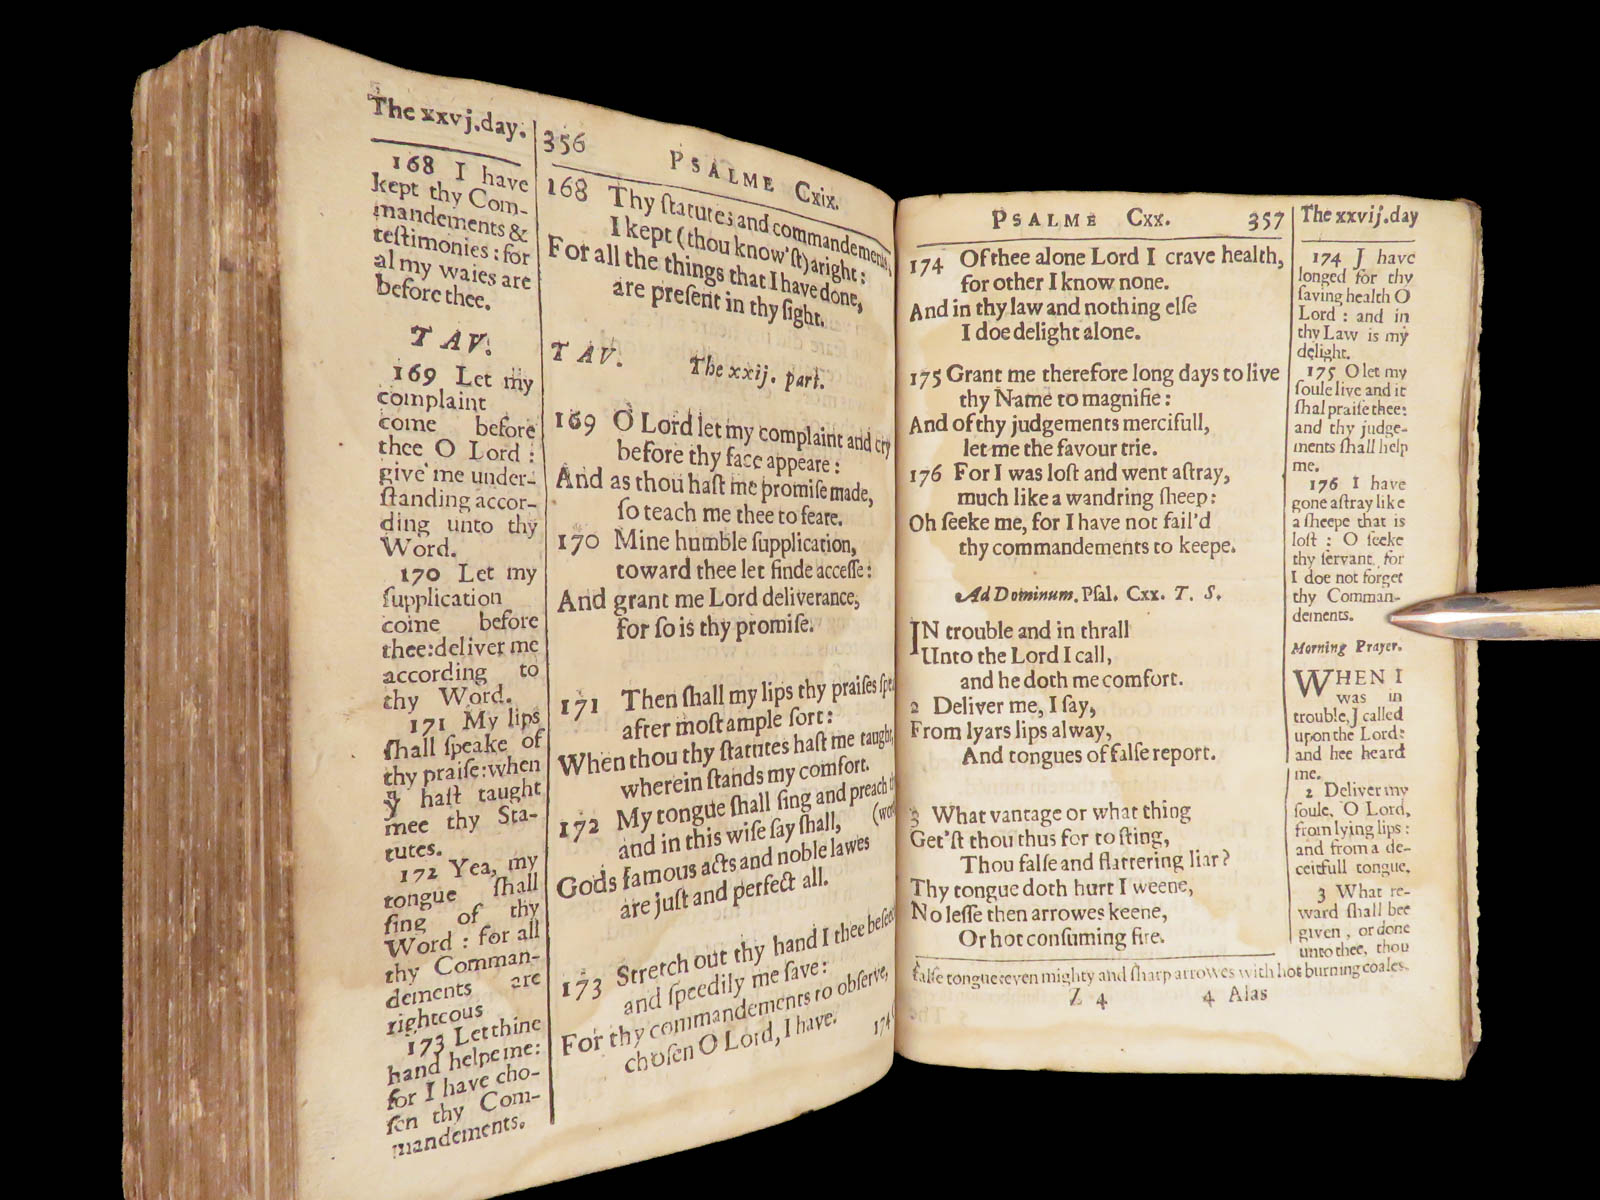 The xxvj.day.
168 I have
kept thy Com-
mandements &
teſtimonies : for
al my waies are
before thee.
T AV.
169 Let my
complaint
come before
thee O Lord :
give me under-
ſtanding accor-
ding unto thy
Word.
170 Let my
ſupplication
come before
thee:deliver me
according to
thy Word.
171 My lips
ſhall ſpeake of
thy praiſe:when
haſt taught
mee thy Sta-
tutes.
172 Yea, my
tongue ſhall
ſing of thy
Word : for all
thy Comman-
dements are
righteous
173 Let thine
hand helpe me:
for I have cho-
ſen thy Com-
mandements.
356
PSALME Cxix.
168 Thy ſtatutes and commandements,
I kept (thou know'ſt) aright :
For all the things that I have done,
are preſent in thy ſight.
T AV. The xxij. part.
169 O Lord let my complaint and cry
before thy face appeare :
And as thou haſt me promiſe made,
ſo teach me thee to feare.
170 Mine humble ſupplication,
toward thee let finde acceſſe :
And grant me Lord deliverance,
for ſo is thy promiſe.
171 Then ſhall my lips thy praiſes
after moſt ample ſort :
When thou thy ſtatutes haſt me taught,
wherein ſtands my comfort.
172 My tongue ſhall ſing and preach
and in this wiſe ſay ſhall,
Gods famous acts and noble lawes
are juſt and perfect all.
173 Stretch out thy hand I thee
and ſpeedily me ſave :
For thy commandements to obſerve,
choſen O Lord, I have.
174
PSALME Cxx. 357
174 Of thee alone Lord I crave health,
for other I know none.
And in thy law and nothing elſe
I doe delight alone.
175 Grant me therefore long days to live
thy Name to magnifie :
And of thy judgements mercifull,
let me the favour trie.
176 For I was loſt and went aſtray,
much like a wandring ſheep :
Oh ſeeke me, for I have not fail'd
thy commandements to keepe.
Ad Dominum. Pſal. Cxx. T. S.
IN trouble and in thrall
Unto the Lord I call,
and he doth me comfort.
2 Deliver me, I ſay,
From lyars lips alway,
And tongues of falſe report.
3 What vantage or what thing
Get'ſt thou thus for to ſting,
Thou falſe and flattering liar ?
Thy tongue doth hurt I weene,
No leſſe then arrowes keene,
Or hot conſuming fire.
The xxvij.day
174 I have
longed for thy
ſaving health O
Lord : and in
thy Law is my
delight.
175 O let my
ſoule live and it
ſhal praiſe thee:
and thy judge-
ments ſhall help
me.
176 I have
gone aſtray like
a ſheepe that is
loſt : O ſeeke
thy ſervant, for
I doe not forget
thy Comman-
dements.
Morning Prayer.
WHEN I
was in
trouble, I called
upon the Lord:
and hee heard
me.
2 Deliver my
ſoule, O Lord,
from lying lips :
and from a de-
ceitfull tongue.
3 What re-
ward ſhall bee
given , or done
unto thee, thou
falſe tongue:even mighty and ſharp arrowes with hot burning coales.
Z 4 4 Alas